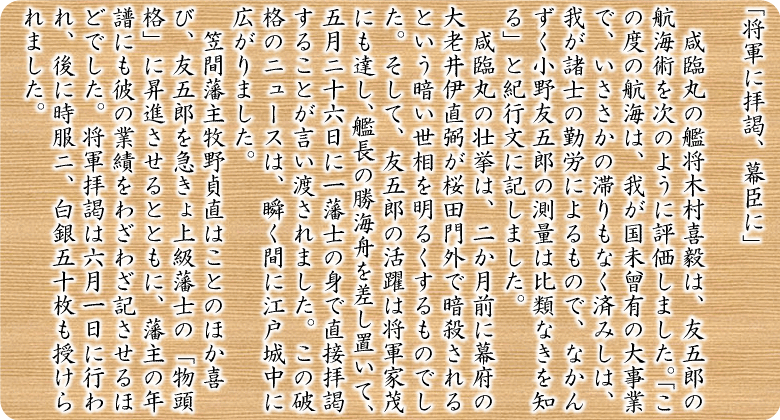 「将軍に拝謁、幕臣に」
　咸臨丸の艦将木村喜毅は、友五郎の
航海術を次のように評価しました。「こ
の度の航海は、我が国未曾有の大事業
で、いささかの滞りもなく済みしは、
我が諸士の勤労によるもので、なかん
ずく小野友五郎の測量は比類なきを知
る」と紀行文に記しました。
　咸臨丸の壮挙は、二か月前に幕府の
大老井伊直弼が桜田門外で暗殺される
という暗い世相を明るくするものでし
た。そして、友五郎の活躍は将軍家茂
にも達し、艦長の勝海舟を差し置いて、
五月二十六日に一藩士の身で直接拝謁
することが言い渡されました。この破
格のニュースは、瞬く間に江戸城中に
広がりました。
　笠間藩主牧野貞直はことのほか喜
び、友五郎を急きょ上級藩士の「物頭
格」に昇進させるとともに、藩主の年
譜にも彼の業績をわざわざ記させるほ
どでした。将軍拝謁は六月一日に行わ
れ、後に時服二、白銀五十枚も授けら
れました。